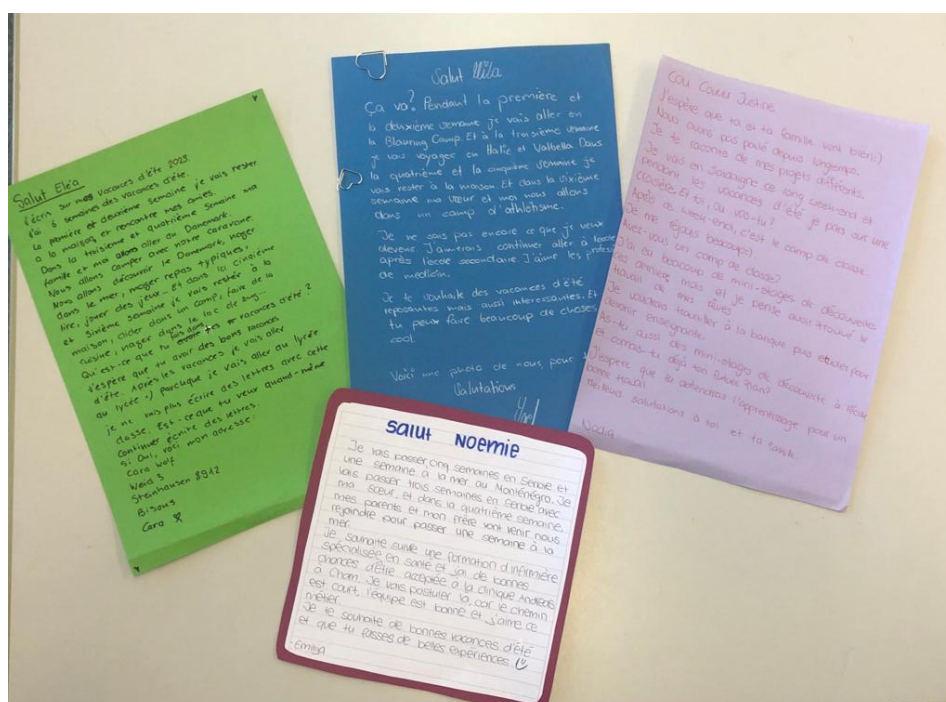 Salut Eléa
J'écris sur mes vacances d'été 2023.
J'ai 6 semaines des vacances d'été.
La première et deuxième semaine je vais rester
à la maison, et rencontre mes amies.
Dans la troisième et quatrième semaine ma
famille et moi allons aller au Danemark.
Nous allons camper avec notre caravane.
Nous allons découvrir le Danemark, nager
dans le mer, manger repas typiques,
lire, jouer des jeux... et dans la cinquième
et sixième semaine je vais rester à la
maison; aider dans un camp, faire de la
cuisine, nager dans le lac de Zug...
Qu'est-ce que tu vacances d'été?
J'espère que tu avoir des bons vacances
d'été. Après les vacances je vais aller
au lycée :) parceque je vais aller au lycée
je ne vais plus écrire des lettres avec cette
classe. Est-ce que tu veux quand-même
continuer écrire des lettres?
Si Oui, voici mon adresse:
Cara Wolf
Weid 3
Steinhausen 8912
Bisous
Cara
Salut
Ça va? Pendant la première et
la deuxième semaine je vais aller en
la Blauring Camp. Et à la troisième semaine
je vais voyager en Italie et Valbella. Dans
la quatrième et la cinquième semaine je
vais rester à la maison. Et dans la sixième
semaine ma sœur et moi nous allons
dans un camp d'athlétisme.
Je ne sais pas encore ce que je veux
devenir. J'aimerais continuer aller à l'école
après l'école secondaire. J'aime les
de medicin.
Je te souhaite des vacances d'été
reposantes mais aussi interessantes. Et
tu peux faire beaucoup de choses
cool.
Voici une photo de nous, pour
Salutations
Cou Coucu Justine
J'espère que toi et ta famille vont bien:)
Nous avons pas parlé depuis longtemps.
Je te raconte de mes projets différents.
Je vais en Sardaigne ce long week-end et
pendant les vacances d'été je pars sur une
croisière. Et toi, où vas-tu?
Après ce week-end, c'est le camp de classe.
Je me réjouis beaucoup:)
Avez-vous un camp de classe?
J'ai eu beaucoup de mini-stages de découverte
ces derniers mois et je pense avoir trouvé le
travail de mes rêves.
Je voudrais travailler à la banque puis étudier pour
devenir enseignante.
As-tu aussi des mini-stages de découverte à l'école
et connais-tu déjà ton future Plan?
J'espère que tu obtiendras l'apprentissage pour un
bonne travail
Meilleurs salutations à toi et ta famille
Nadia
Salut Noemie
Je vais passer cinq semaines en Serbie et
une semaine à la mer au Monténégro. Je
vais passer trois semaines en Serbie avec
ma sœur, et dans la quatrième semaine,
mes parents et mon frère vont venir nous
rejoindre pour passer une semaine à la
mer.
Je souhaite suivre une formation d'infirmière
spécialisée en santé et j'ai de bonnes
chances d'être acceptée à la clinique Andreas
à Cham. Je vais postuler là, car le chemin
est court, l'équipe est bonne et j'aime ce
métier.
Je te souhaite de bonnes vacances d'été
et que tu fasses de belles expériences.
-Emilija